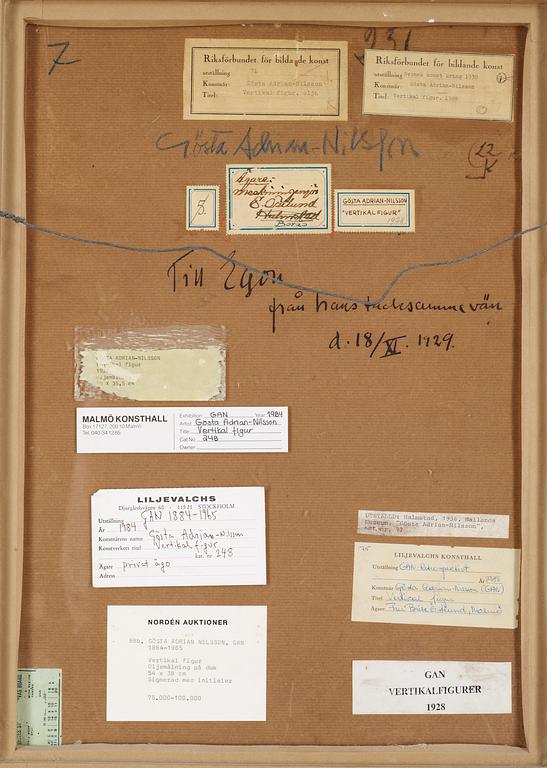 7
931
Riksförbundet för bildande konst
utställning 71
Konstnär: Gösta Adrian-Nilsson
Titel: Vertikal figur, olja.
Riksförbundet för bildande konst
utställning Svensk konst kring 1930
Konstnär: Gösta Adrian-Nilsson
Titel: Vertikal figur, 1928
Gösta Adrian-Nilsson
22
5.
Ägare:
E. Östlund
Halmstad
Borås
GÖSTA ADRIAN-NILSSON
"VERTIKAL FIGUR"
1928
Till Egon
från hans tacksamme vän
d. 18/XI. 1929.
GÖSTA ADRIAN-NILSSON
Vertikal figur
MALMÖ KONSTHALL
Box 17127, 200 10 Malmö
Tel. 040-34 12 85
Exhibition GAN Year 1984
Artist Gösta Adrian-Nilsson
Title Vertikal figur
Cat No 248
Owner
LILJEVALCHS
Djurgårdsvägen 60 - 115 21 STOCKHOLM
Utställning GAN 1884-1965
År 1984
Konstnärens namn Gösta Adrian-Nilsson
Konstverkets titel Vertikal figur
kat. nr 248
Ägare privat ägo
Adress
UTSTÄLLD: Halmstad, 1936, Hallands
Museum, "Gösta Adrian-Nilsson",
LILJEVALCHS KONSTHALL
Utställning GAN-Retrospektivt
År
Konstnär Gösta Adrian-Nilsson (GAN)
Titel Vertikal figur
Ägare Fru Brita Östlund, Malmö
NORDÉN AUKTIONER
886. GÖSTA ADRIAN NILSSON, GAN
1884-1965
Vertikal figur
Oljemålning på duk
54 x 38 cm
Signerad med initialer
75.000-100.000
GAN
VERTIKALFIGURER
1928